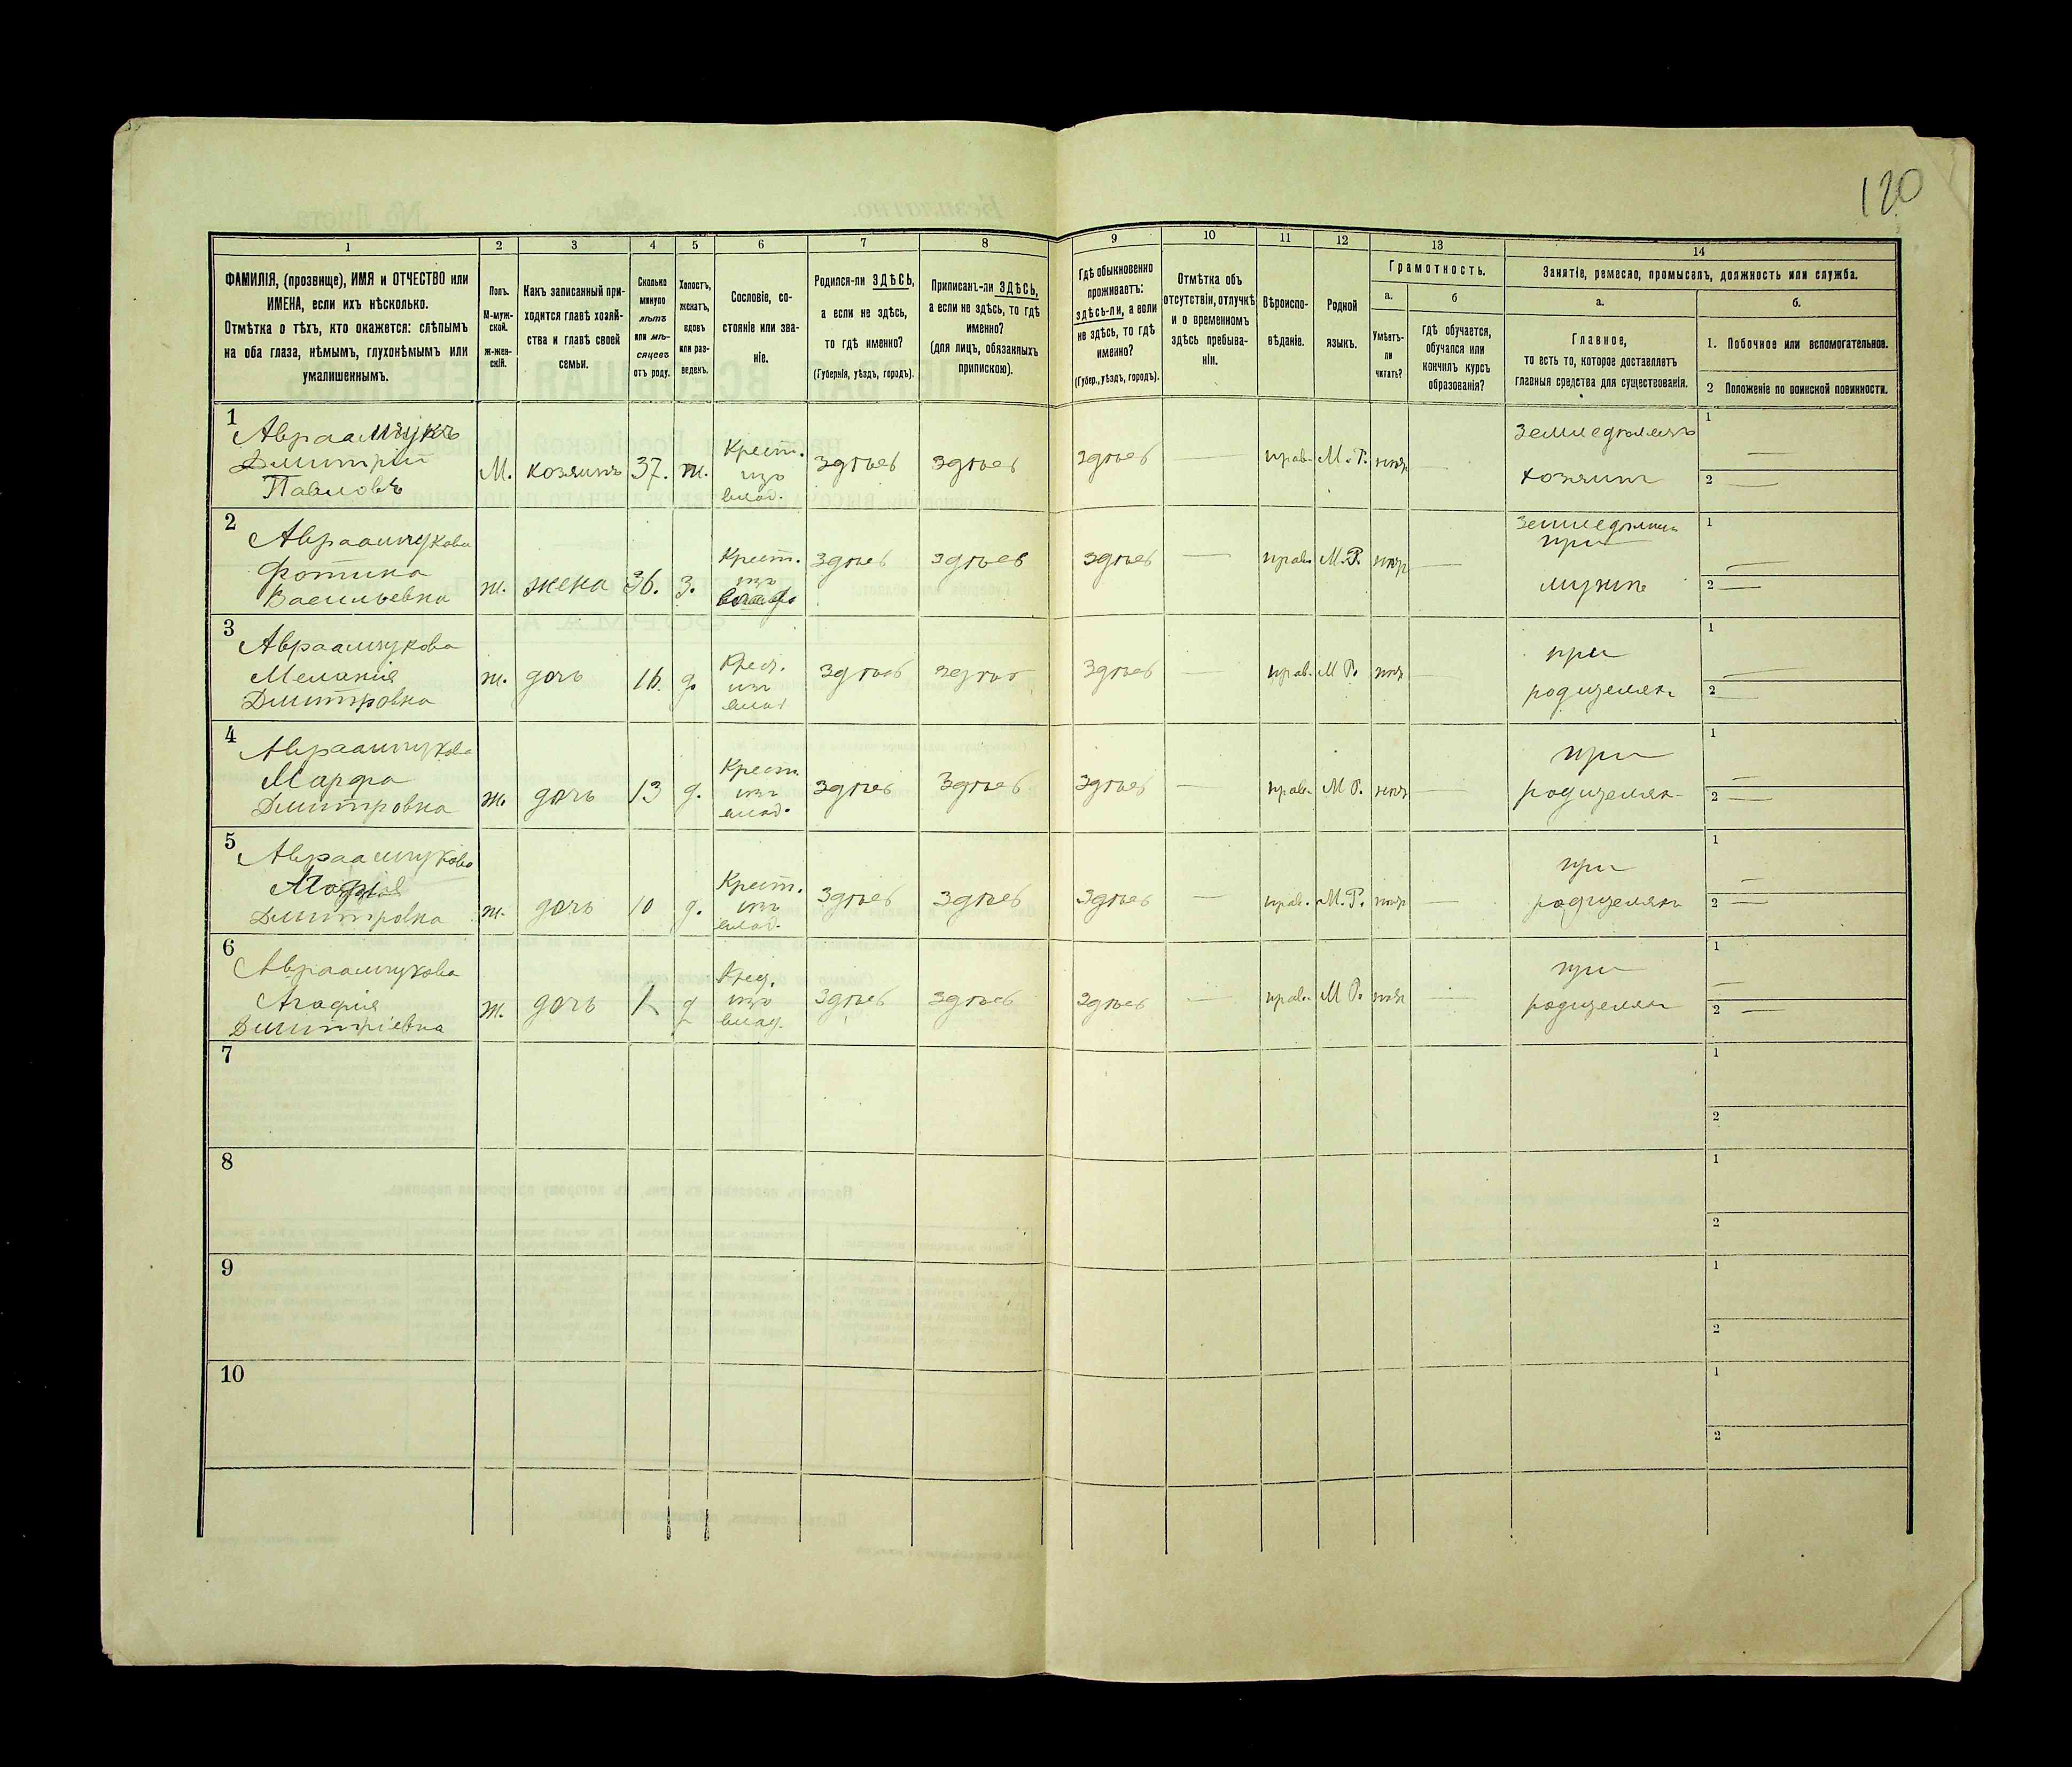 120
1 2 3 4 5 6 7 8 9 10 11 12 13 14
ФАМИЛІЯ, (прозвище), ИМЯ и ОТЧЕСТВО или
ИМЕНА, если ихъ нѣсколько.
Отмѣтка о тѣхъ, кто окажется: слѣпымъ
на оба глаза, нѣмымъ, глухонѣмымъ или
умалишеннымъ.
Полъ.
М-муж-
ской.
ж-жен-
скій.
Какъ записанный при-
ходится главѣ хозяй-
ства и главѣ своей
семьи.
Сколько
минуло
лѣтъ
или мѣ-
сяцевъ
отъ роду.
Холостъ,
женатъ,
вдовъ
или раз-
веденъ.
Сословіе, со-
стояніе или зва-
ніе.
Родился-ли ЗДѢСЬ,
а если не здѣсь,
то гдѣ именно?
(Губернія, уѣздъ, городъ).
Приписанъ-ли ЗДѢСЬ,
а если не здѣсь, то гдѣ
именно?
(для лицъ, обязанныхъ
припискою).
Гдѣ обыкновенно
проживаетъ:
здѣсь-ли, а если
не здѣсь, то гдѣ
именно?
(Губер., уѣздъ, городъ).
Отмѣтка объ
отсутствіи, отлучкѣ
и о временномъ
здѣсь пребыва-
ніи.
Вѣроиспо-
вѣданіе.
Родной
языкъ.
Грамотность.
а. б
Умѣетъ-
ли
читать?
гдѣ обучается,
обучался или
кончилъ курсъ
образованія?
Занятіе, ремесло, промыселъ, должность или служба.
а. б.
Главное,
то есть то, которое доставляетъ
главныя средства для существованія.
1. Побочное или вспомогательное.
2 Положеніе по воинской повинности.
1
Авраамчукъ
Дмитрій
Павловъ
М. хозяинъ 37. ж.
Крест.
изъ
влад.
здѣсь здѣсь здѣсь — прав. М.Р. —
Земледѣлецъ
хозяинъ
1 —
2 —
2
Авраамчукова
Фотина
Васильевна
ж. жена 36. з.
Крест.
изъ
здѣсь здѣсь здѣсь — прав. М.Р. —
при
мужѣ
1 —
2 —
3
Авраамчукова
Меланія
Дмитровна
ж. дочь 16. д.
Крест.
изъ
влад
здѣсь здѣсь здѣсь — прав. М Р. —
при
родителяхъ
1 —
2 —
4
Авраамчукова
Марфа
Дмитровна
ж. дочь 13 д.
Крест.
изъ
влад.
здѣсь здѣсь здѣсь — прав. М Р.
при
родителях
1 —
2 —
5
Авраамчукова
Дмитровна
ж. дочь 10 д.
Крест.
изъ
влад.
здѣсь здѣсь здѣсь — прав. М.Р. —
при
родителях
1 —
2 —
6
Авраамчукова
Агафія
Дмитріевна
ж. дочь 1 д
Крест.
изъ
влад.
здѣсь здѣсь здѣсь — прав. М Р. —
при
родителях
1 —
2 —
7
1
2
8
1
2
9
1
2
10
1
2